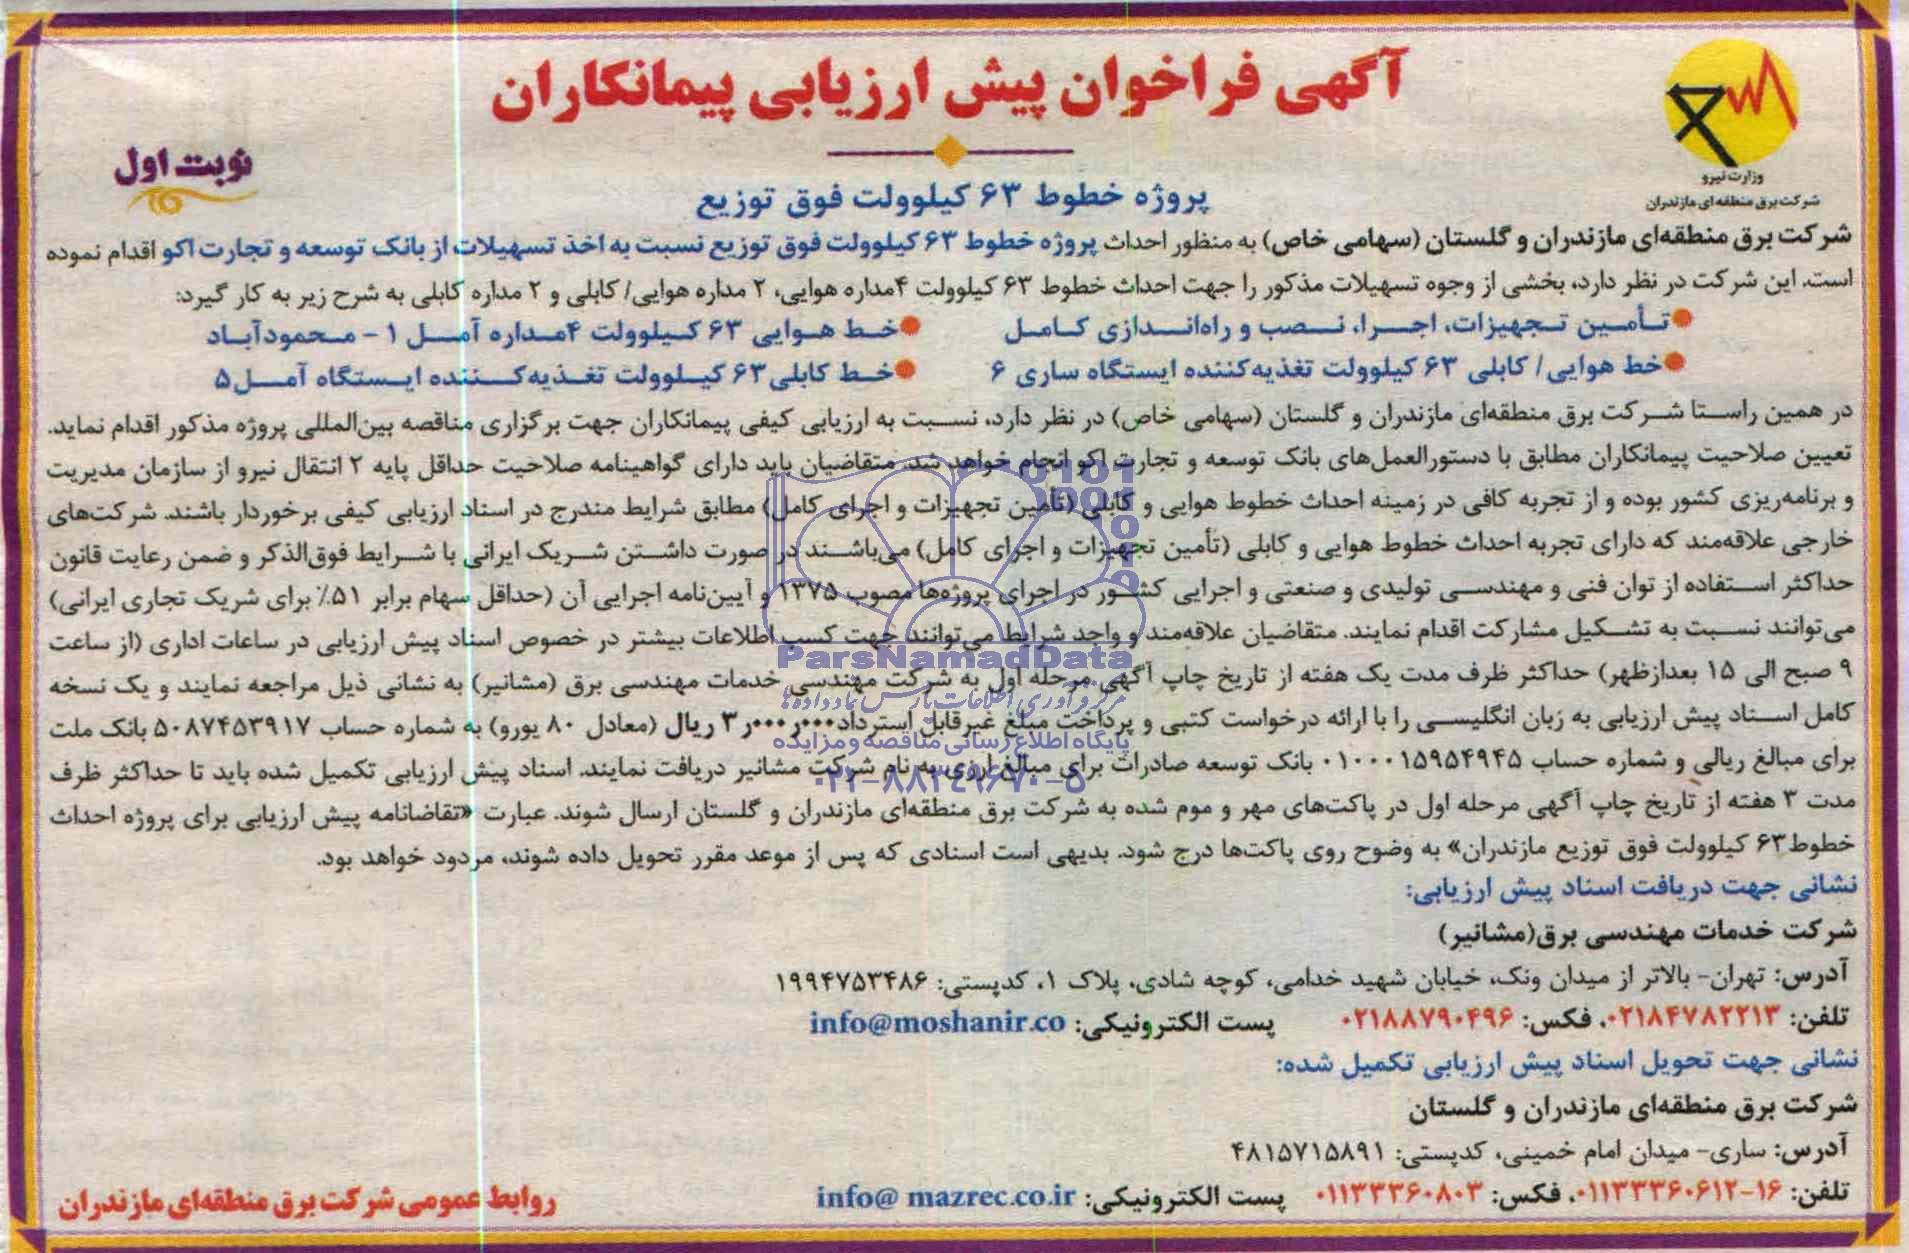 آگهی فراخوان پیش ارزیابی پیمانکاران
وزارت نیرو
شرکت برق منطقه ای مازندران
نوبت اول
پروژه خطوط ۶۳ کیلوولت فوق توزیع
شرکت برق منطقه‌ای مازندران و گلستان (سهامی خاص) به منظور احداث پروژه خطوط ۶۳ کیلوولت فوق توزیع نسبت به اخذ تسهیلات از بانک توسعه و تجارت اکو اقدام نموده
است. این شرکت در نظر دارد، بخشی از وجوه تسهیلات مذکور را جهت احداث خطوط ۶۳ کیلوولت ۴مداره هوایی، ۲ مداره هوایی/ کابلی و ۲ مداره کابلی به شرح زیر به کار گیرد:
تأمین تجهیزات، اجرا، نصب و راه‌اندازی کامل
خط هوایی ۶۳ کیلوولت ۴مداره آمل ۱ - محمودآباد
خط هوایی/ کابلی ۶۳ کیلوولت تغذیه‌کننده ایستگاه ساری ۶
خط کابلی ۶۳ کیلوولت تغذیه‌کننده ایستگاه آمل۵
در همین راستا شرکت برق منطقه‌ای مازندران و گلستان (سهامی خاص) در نظر دارد، نسبت به ارزیابی کیفی پیمانکاران جهت برگزاری مناقصه بین‌المللی پروژه مذکور اقدام نماید.
تعیین صلاحیت پیمانکاران مطابق با دستورالعمل‌های بانک توسعه و تجارت اکو انجام خواهد شد. متقاضیان باید دارای گواهینامه صلاحیت حداقل پایه ۲ انتقال نیرو از سازمان مدیریت
و برنامه‌ریزی کشور بوده و از تجربه کافی در زمینه احداث خطوط هوایی و کابلی (تأمین تجهیزات و اجرای کامل) مطابق شرایط مندرج در اسناد ارزیابی کیفی برخوردار باشند. شرکت‌های
خارجی علاقه‌مند که دارای تجربه احداث خطوط هوایی و کابلی (تأمین تجهیزات و اجرای کامل) می‌باشند در صورت داشتن شریک ایرانی با شرایط فوق‌الذکر و ضمن رعایت قانون
حداکثر استفاده از توان فنی و مهندسی تولیدی و صنعتی و اجرایی کشور در اجرای پروژه‌ها مصوب ۱۳۷۵ و آیین‌نامه اجرایی آن (حداقل سهام برابر ۵۱٪ برای شریک تجاری ایرانی)
می‌توانند نسبت به تشکیل مشارکت اقدام نمایند. متقاضیان علاقه‌مند و واجد شرایط می‌توانند جهت کسب اطلاعات بیشتر در خصوص اسناد پیش ارزیابی در ساعات اداری (از ساعت
۹ صبح الی ۱۵ بعدازظهر) حداکثر ظرف مدت یک هفته از تاریخ چاپ آگهی مرحله اول به شرکت مهندسی خدمات مهندسی برق (مشانیر) به نشانی ذیل مراجعه نمایند و یک نسخه
کامل اسناد پیش ارزیابی به زبان انگلیسی را با ارائه درخواست کتبی و پرداخت مبلغ غیرقابل استرداد ۳ر۰۰۰ر۰۰۰ ریال (معادل ۸۰ یورو) به شماره حساب ۵۰۸۷۴۵۳۹۱۷ بانک ملت
برای مبالغ ریالی و شماره حساب ۰۱۰۰۰۱۵۹۵۴۹۴۵ بانک توسعه صادرات برای مبالغ ارزی به نام شرکت مشانیر دریافت نمایند. اسناد پیش ارزیابی تکمیل شده باید تا حداکثر ظرف
مدت ۳ هفته از تاریخ چاپ آگهی مرحله اول در پاکت‌های مهر و موم شده به شرکت برق منطقه‌ای مازندران و گلستان ارسال شوند. عبارت «تقاضانامه پیش ارزیابی برای پروژه احداث
خطوط۶۳ کیلوولت فوق توزیع مازندران» به وضوح روی پاکت‌ها درج شود. بدیهی است اسنادی که پس از موعد مقرر تحویل داده شوند، مردود خواهد بود.
ParsNamadData
مرکز فرآوری اطلاعات پارس نماد داده‌ها
پایگاه اطلاع رسانی مناقصه و مزایده
۰۲۱-۸۸۳۴۹۶۷۰-۵
نشانی جهت دریافت اسناد پیش ارزیابی:
شرکت خدمات مهندسی برق(مشانیر)
آدرس: تهران- بالاتر از میدان ونک، خیابان شهید خدامی، کوچه شادی، پلاک ۱، کدپستی: ۱۹۹۴۷۵۳۴۸۶
تلفن: ۰۲۱۸۴۷۸۲۲۱۳، فکس: ۰۲۱۸۸۷۹۰۴۹۶ پست الکترونیکی: info@moshanir.co
نشانی جهت تحویل اسناد پیش ارزیابی تکمیل شده:
شرکت برق منطقه‌ای مازندران و گلستان
آدرس: ساری- میدان امام خمینی، کدپستی: ۴۸۱۵۷۱۵۸۹۱
تلفن: ۱۶-۰۱۱۳۳۳۶۰۶۱۲، فکس: ۰۱۱۳۳۳۶۰۸۰۳ پست الکترونیکی: info@ mazrec.co.ir
روابط عمومی شرکت برق منطقه‌ای مازندران